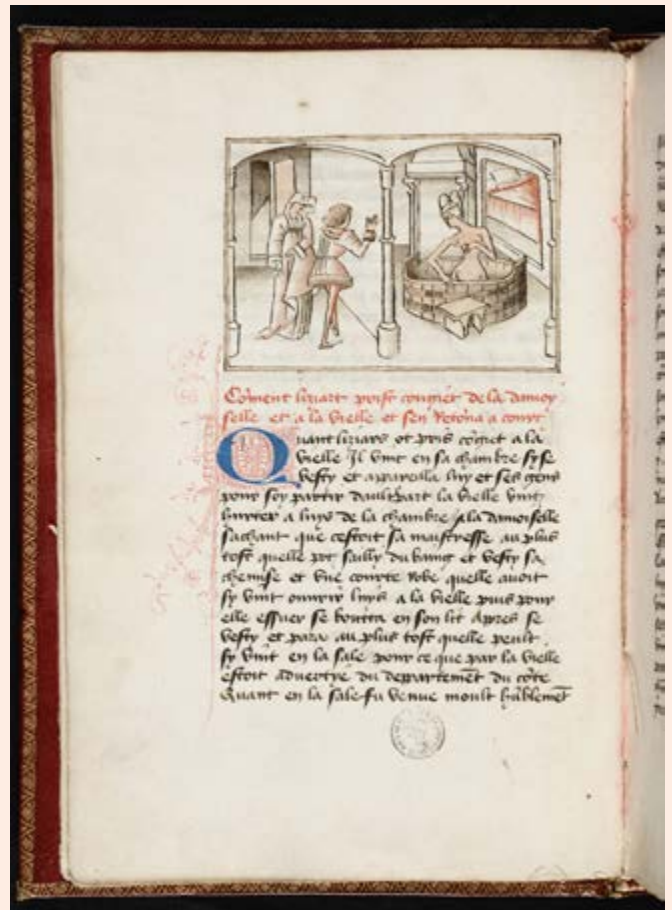 Com̃ent liziart prist congiet de la damoy
selle et a la vielle et sen retorna a court
Quant liziars ot pris cōgiet a la
vielle Il vint en sa chambre sy se
vesty et apareilla luy et ses gens
pour soy partir daultre part la vielle vint
hurter a luys de la chambre / la damoiselle
sachant que cestoit sa maistresse au plus
tost quelle pot sailly du baing et vesty sa
chemise et vne courte robe quelle auoit
sy vint ouurir luys a la vielle puis pour
elle essuer se bouta en son lit Apres se
vesty et para au plus tost quelle peult
sy vint en la sale pour ce que par la vielle
estoit aduertye du departement du cōte
Quant en la sale fu venue moult hūblemēt